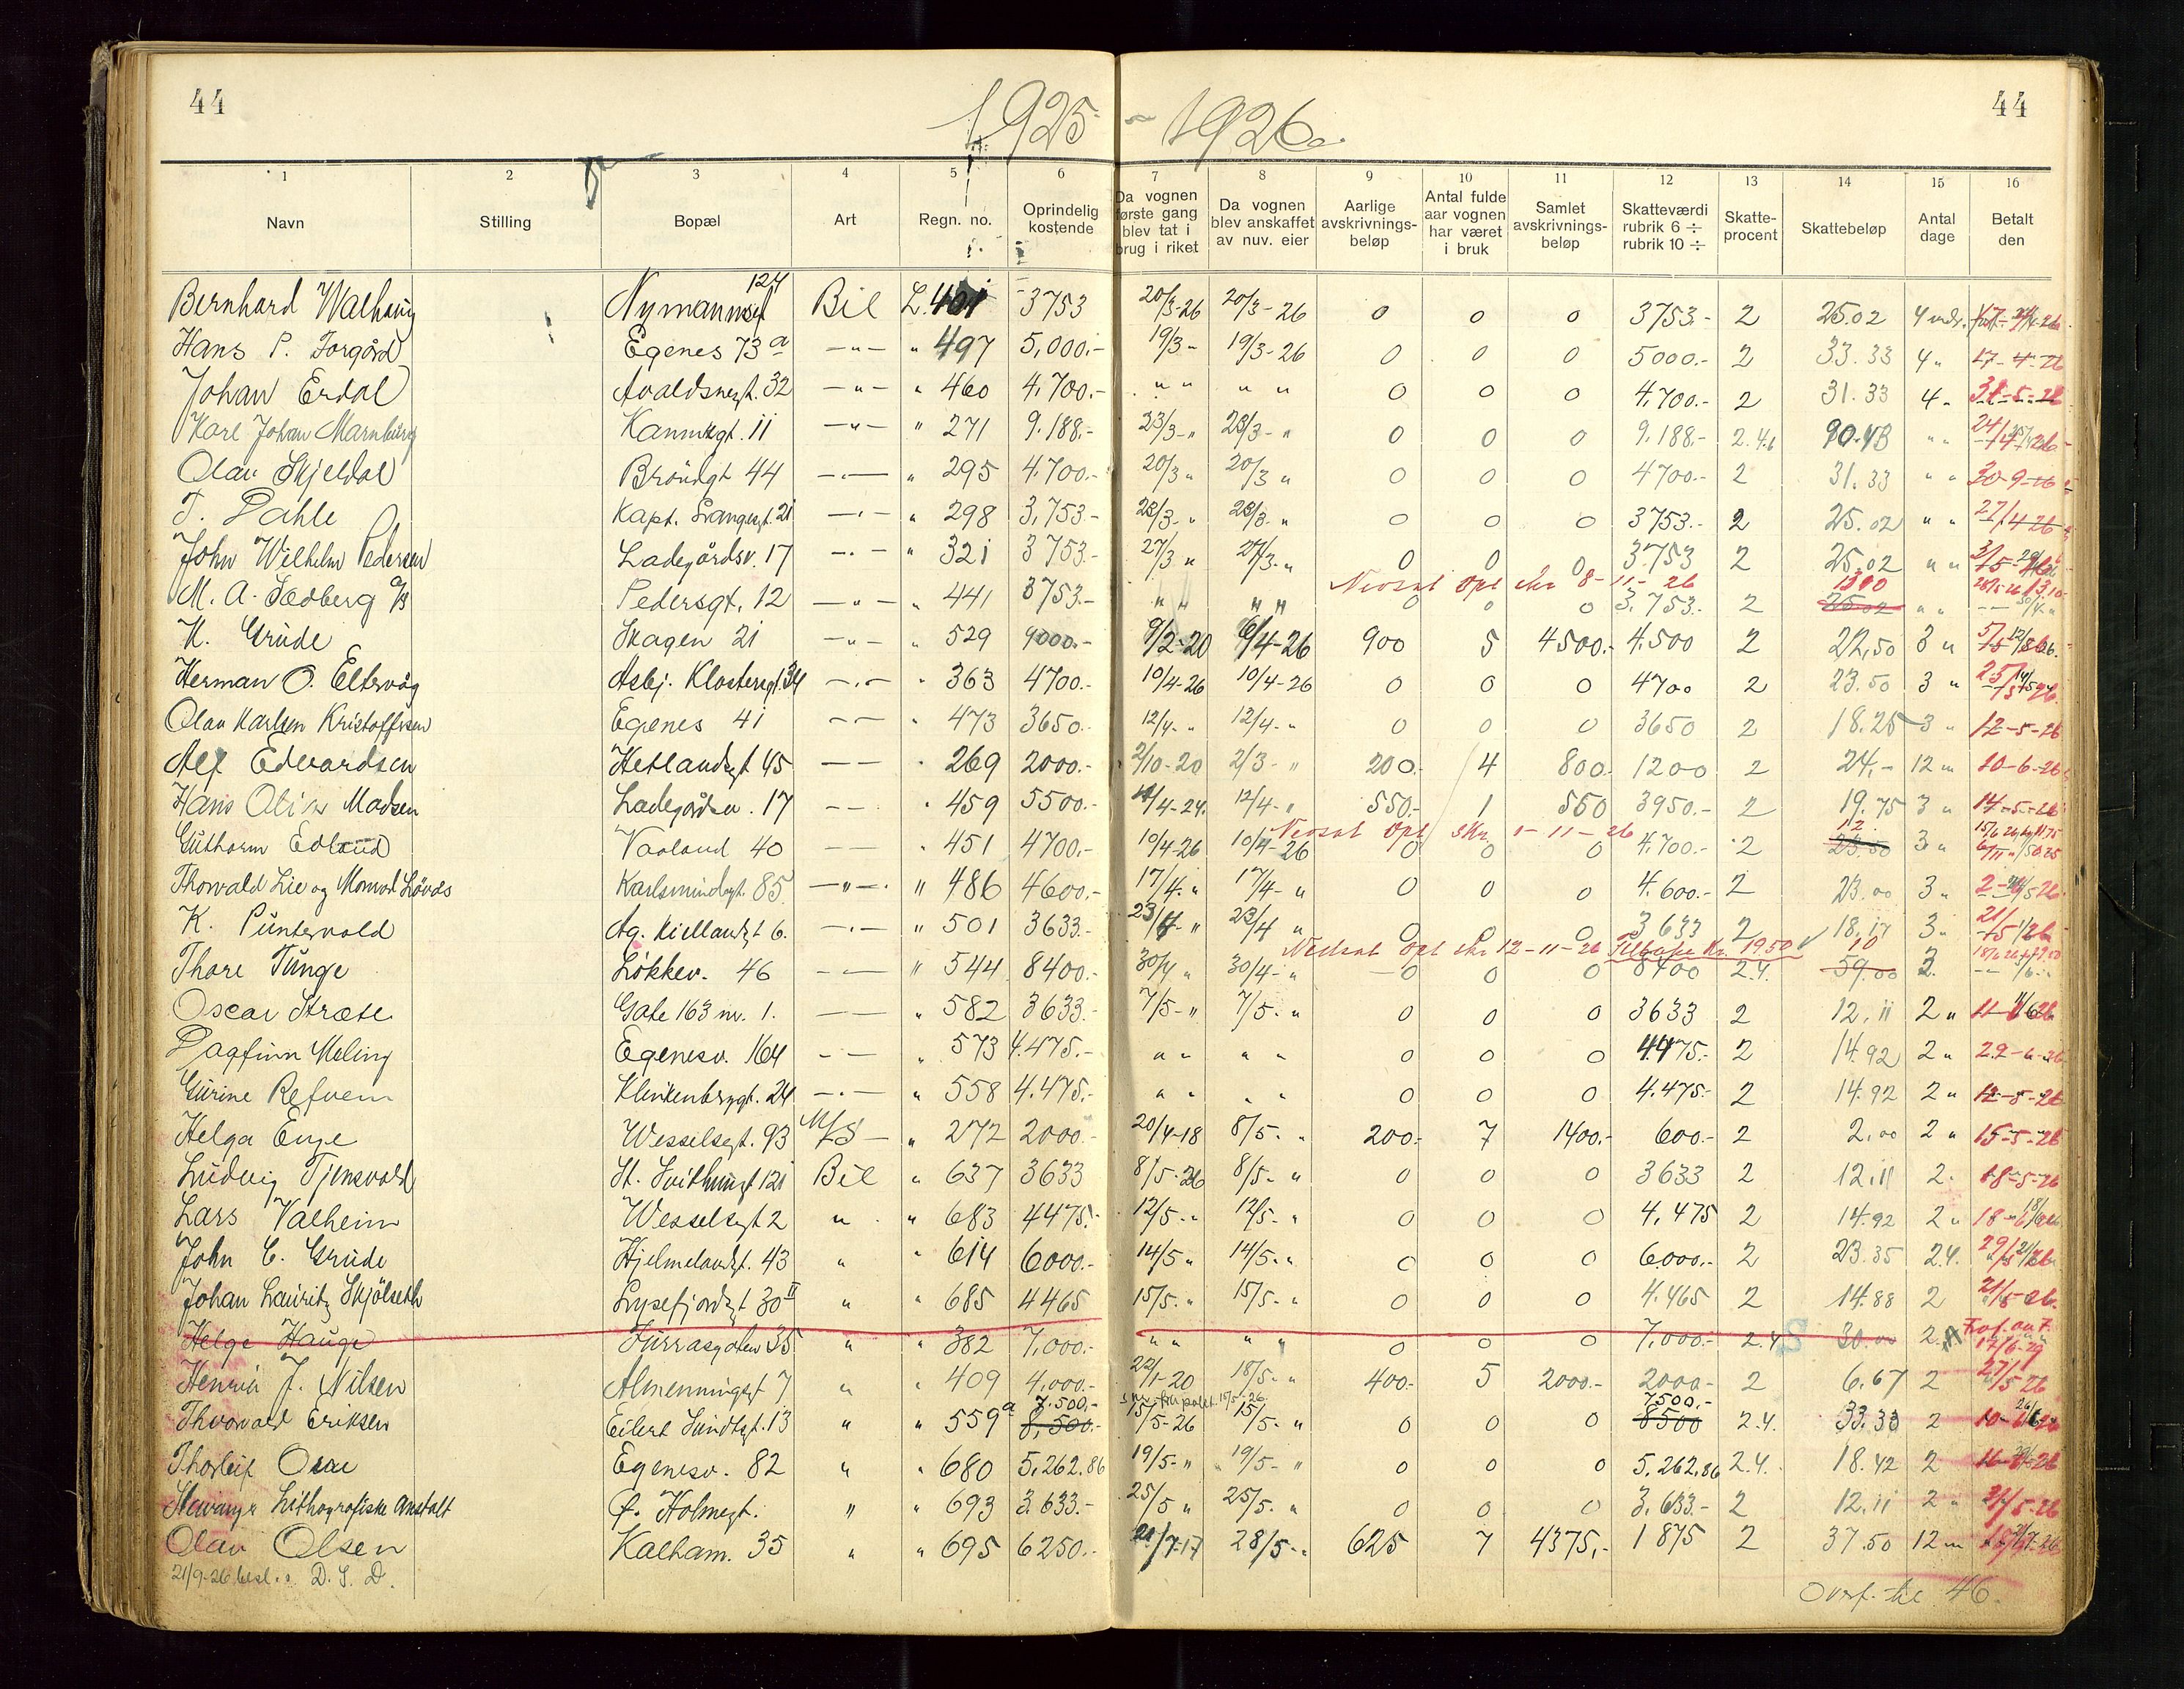 44
1925 - 1926
44
1 2 3 4 5 6 7 8 9 10 11 12 13 14 15 16
Navn Stilling Bopæl Art Regn. no. Oprindelig kostende Da vognen første gang blev tat i brug i riket Da vognen blev anskaffet av nuv. eier Aarlige avskrivnings-beløp Antal fulde aar vognen har været i bruk Samlet avskrivnings-beløp Skatteværdi rubrik 6 ÷ rubrik 10 ÷ Skatte-procent Skattebeløp Antal dage Betalt den
Bernhard Walhaug 124 Bil L. 401 3753 20/3-26 20/3-26 0 0 0 3753.- 2 25.02 4
Hans P. Torgård Egenes 73 a -"- " 497 5,000.- 19/3- 19/3-26 0 0 0 5000.- 2 33.33 4 " 17-4-26
Johan Erdal Avaldsnesgt. 32 -"- " 460 4.700.- " " " " 0 0 0 4.700.- 2 31.33 4 " 31-5-26
Karl Johan Marnburg Kannikgt. 11 -"- " 271 9.188.- 23/3- " 23/3- " 0 0 0 9.188.- 2.4. 90.48 " "
Olav Skjeldal Bröndgt 44 -"- " 295 4.700.- 20/3 " 20/3 " 0 0 0 4700.- 2 31.33 " " 30-9-26
T. Dahle Kapt. Langesgt. 21 -"- " 298 3,753.- 23/3- " 23/3- " 0 0 0 3753.- 2 25.02 " " 27/4 26
John Wilhelm Pedersen Ladegårdsv. 17 -"- " 321 3753.- 27/3 " 27/3- " 0 0 0 3.753 2 25.02 " "
Nedsat Opl skr 8-11-26 1300
M. A. Sædberg A/S Pedersgt. 12 -"- " 441 3753.- " " " " 0 0 0 3.753.- 2 25.02 " "
K. Grude Skagen 21 -"- " 529 9000.- 9/2-20 6/4-26 900 5 4500.- 4.500 2 22,50 3 "
Herman O. Eltervåg Asbj. Klostersgt. 34 -"- " 363 4700.- 10/4-26 10/4-26 0 0 0 4700 2 23.50 3 "
Olav Karlsen Kristoffersen Egenes 41 -- " 473 3650.- 12/4- " 12/4- " 0 0 0 3650 2 18.25 3 " 12-5-26
Alf Edvardsen Hetlandsgt 45 -- " 269 2000.- 2/10-20 2/3- " 200.- 4 800 1200 2 24,- 12 m 10-6-26
Hans Madsen Ladegårdsv. 17 -- " 459 5500.- 12/4- " 550.- 1 550 3950.- 2 19.75 3 " 14-5-26
Nedsat Opl skr 1-11-26
Guthorm Edland Vaaland 40 -- " 451 4700.- 10/4-26 10/4-26 0 0 0 4.700.- 2 23.50 3 "
Thorvald Lie og Karlsmindegt. 85 -"- " 486 4600.- 17/4. " 17/4- " 0 0 0 4.600.- 2 23.00 3 "
K. Puntervold Ag. Kiellandsgt 6. -"- " 501 3633.- 23/4- " 23/4 " 0 0 0 3633 2 18,17 3 "
Nedsat Opl skr 12-11-26 Tilbake Kr. 19.50 10
Thore Tunge Løkkev. 46 -- " 544 8400.- 30/4 " 30/4- " 0 0 0 8400 2.4. 59.00 3.
Oscar Stræte Gate 163 nr. 1. -- " 582 3633.- 7/5- " 7/5- " 0 0 0 3633 2 12.11 2 "
Dagfinn Meling Egenesv. 164 -- " 573 4.475.- " " " " 0 0 0 4475.- 2 14.92 2 " 22-6-26
Gurine Refvem Klinkenbergt. 24 -"- " 558 4.475.- " " " " 0 0 0 4.475.- 2 14.92 2 " 12-5-26
Helga Enge Wesselsgt. 93 M/S- " 272 2000.- 20/4-18 8/5- " 200.- 7 1400.- 600.- 2 2.00 2 " 15-5-26
Ludvig Tjensvold St. Svithunsgt 121 Bil " 637 3633 8/5-26 8/5- " 0 0 0 3633 2 12.11 2. 18-5-26
Lars Valheim Wesselsgt 2 " " 683 4475.- 12/5- " 12/5- " 0 0 0 4.475 2 14.92 2 "
John C. Grude Hjelmelandsgt. 43 " " 614 6000.- 14/5 " 14/5- " 0 0 0 6.000.- 2 23.35 2.4.
Johan Lauritz Skjölseth Lysefjordsgt 30 II " " 685 4465 15/5- " 15/5- " 0 0 0 4.465 2 14.88 2 21/5-26.
Helge Hauge 35 " " 382 7,000.- " " " " 0 0 0 7,000.- 2.4 30.00 2
Henrik J. Nilsen Almenningsgt 7 " " 409 4,000.- 22/1-20 18/5- " 400.- 5 2000.- 2000.- 2 6.67 2
7.500.- 7500.-
Thorvald Eriksen Eilert Sundtsgt. 13 " " 559 a 8,500.- 15/5-26 15/5- " 0 0 8500 2.4. 33.33 2
Thorleif Egenesv. 82 " " 680 5,262.86 19/5- " 19/5- " 0 0 0 5,262,86 2.4. 18.42 2
Stavanger Lithografiske Anstalt Holmegt. " " 693 3.633.- 25/5 " 25/5- " 0 0 0 3,633- 2 12.11 2 "
Olav Olsen Kalham. 35 " " 695 6250.- 28/5- " 625 7 4375,- 1875 2 37.50 12 m
21/9-26 D. S. D.
Overf. til 46.